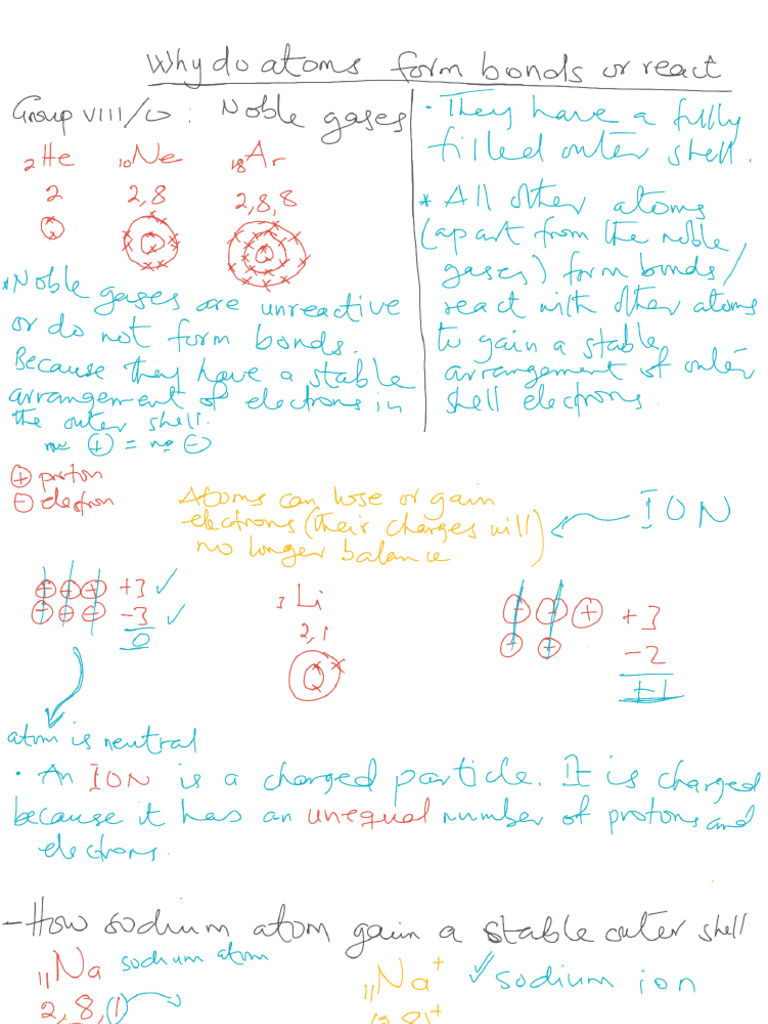 Why do atoms form bonds or react
Group VIII/0 : Noble gases
2He 10Ne 18Ar
2 2,8 2,8,8
* Noble gases are unreactive
or do not form bonds.
Because they have a stable
arrangement of electrons in
the outer shell.
⊕ = no ⊖
• They have a fully
filled outer shell.
* All other atoms
(apart from the noble
gases) form bonds/
react with other atoms
to gain a stable
arrangement of outer
shell electrons.
⊕ proton
⊖ electron
Atoms can lose or gain
electrons (their charges will)
no longer balance
ION
⊕ ⊕ ⊕ +3 ✓
⊖ ⊖ ⊖ -3 ✓
0
3Li
2,1
⊕ ⊕ ⊕ +3
⊖ ⊖ -2
+1
atom is neutral
• An ION is a charged particle. It is charged
because it has an unequal number of protons and
electrons.
- How sodium atom gain a stable outer shell
11Na sodium atom
2,8,1
11Na+ ✓ sodium ion